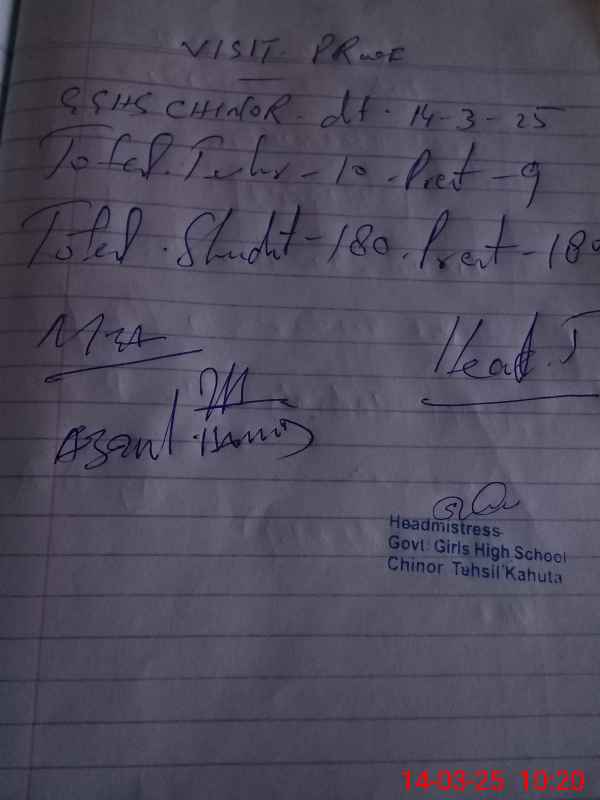 VISIT PROOF
GGHS CHINOR. dt. 14-3-25
Total. - 10. - 9
Total. Student - 180. - 180
MEA Head. T
Headmistress
Govt: Girls High School
Chinor Tehsil Kahuta
14-03-25 10:20